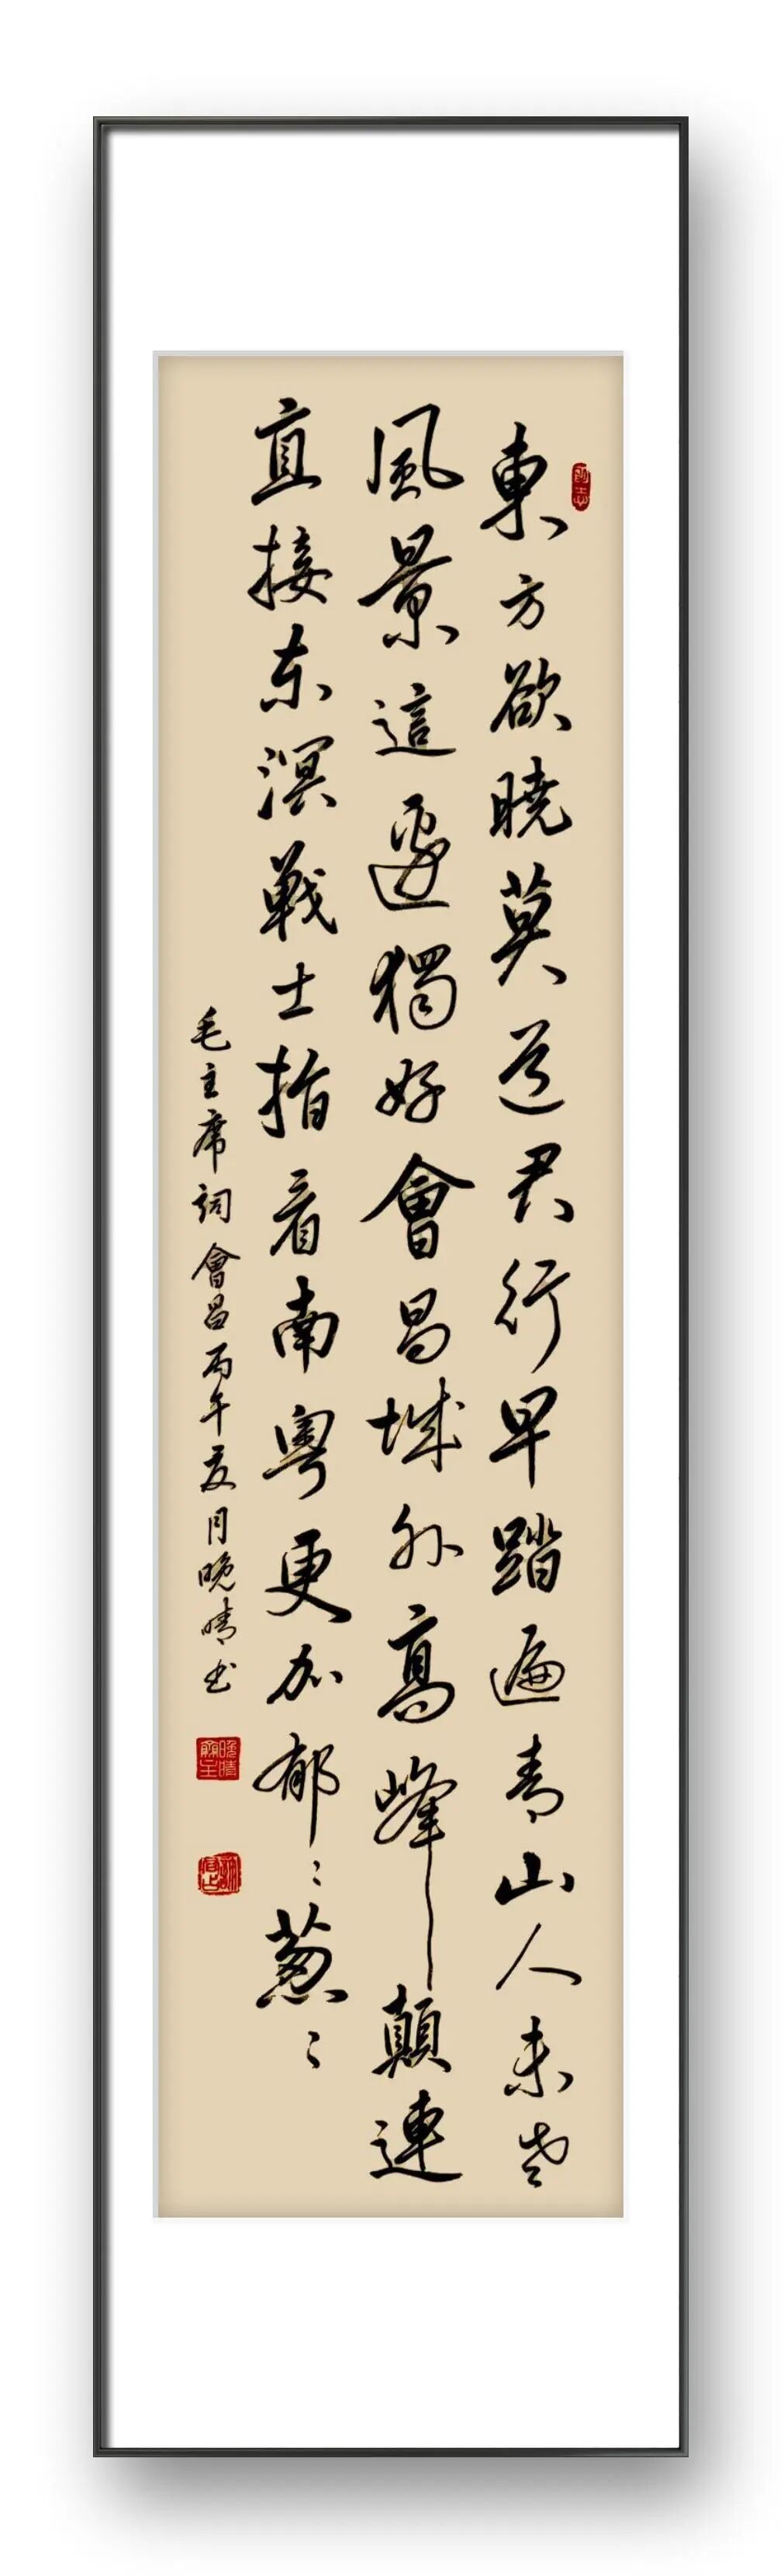 東方欲曉莫道君行早踏遍青山人未老
風景這邊獨好會昌城外高峰顛連
直接东溟戰士指看南粵更加郁〻葱〻
毛主席詞會昌丙午夏月晚晴书
晚晴齋主